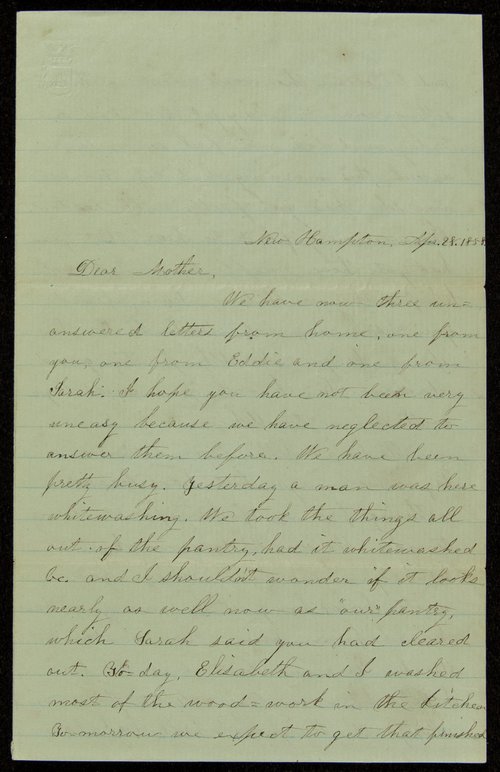 New Hampton, Apr. 28. 185
Dear Mother,
We have now three un=
answered letters from home, one from
you, one from Eddie and one from
Sarah. I hope you have not been very
uneasy because we have neglected to
answer them before. We have been
pretty busy. Yesterday a man was here
whitewashing. We took the things all
out of the pantry, had it whitewashed
&c. and I shouldn't wonder if it looks
nearly as well now as "our" pantry,
which Sarah said you had cleared
out. To-day, Elisabeth and I washed
most of the wood=work in the kitchen
To-morrow we expect to get that finished